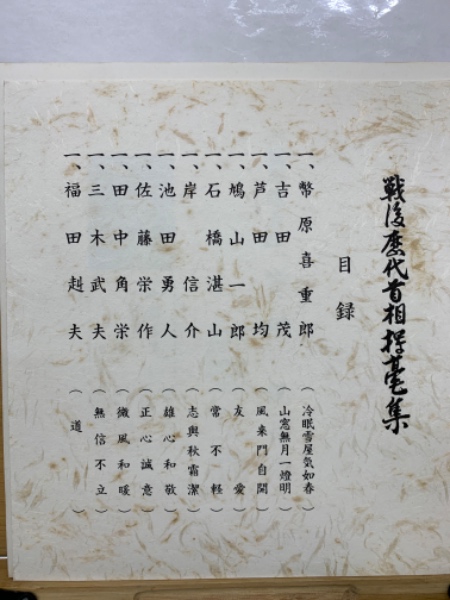 戦後歴代首相揮毫集
目録
一、幣原喜重郎（冷眠雪屋気如春）
一、吉田茂（山窓無月一燈明）
一、芦田均（風来門自開）
一、鳩山一郎（友愛）
一、石橋湛山（常不軽）
一、岸信介（志與秋霜潔）
一、池田勇人（雄心和敬）
一、佐藤栄作（正心誠意）
一、田中角栄（微風和暖）
一、三木武夫（無信不立）
一、福田赳夫（道）